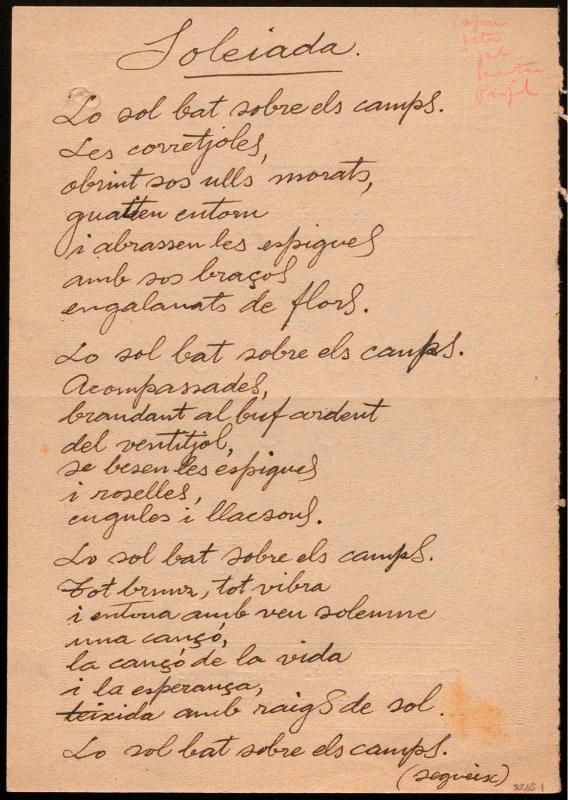 Soleiada.
Lo sol bat sobre els camps.
Les corretjoles,
obrint sos ulls morats,
guaiten entorn
i abrassen les espigues
amb sos braços
engalanats de flors.
Lo sol bat sobre els camps.
Acompassades,
brandant al buf ardent
del ventitjol,
se besen les espigues
i roselles,
cugules i llacsons.
Lo sol bat sobre els camps.
Tot brunz, tot vibra
i entona amb veu solemne
una cançó,
la cançó de la vida
i la esperança,
teixida amb raigs de sol.
Lo sol bat sobre els camps.
(segueix)